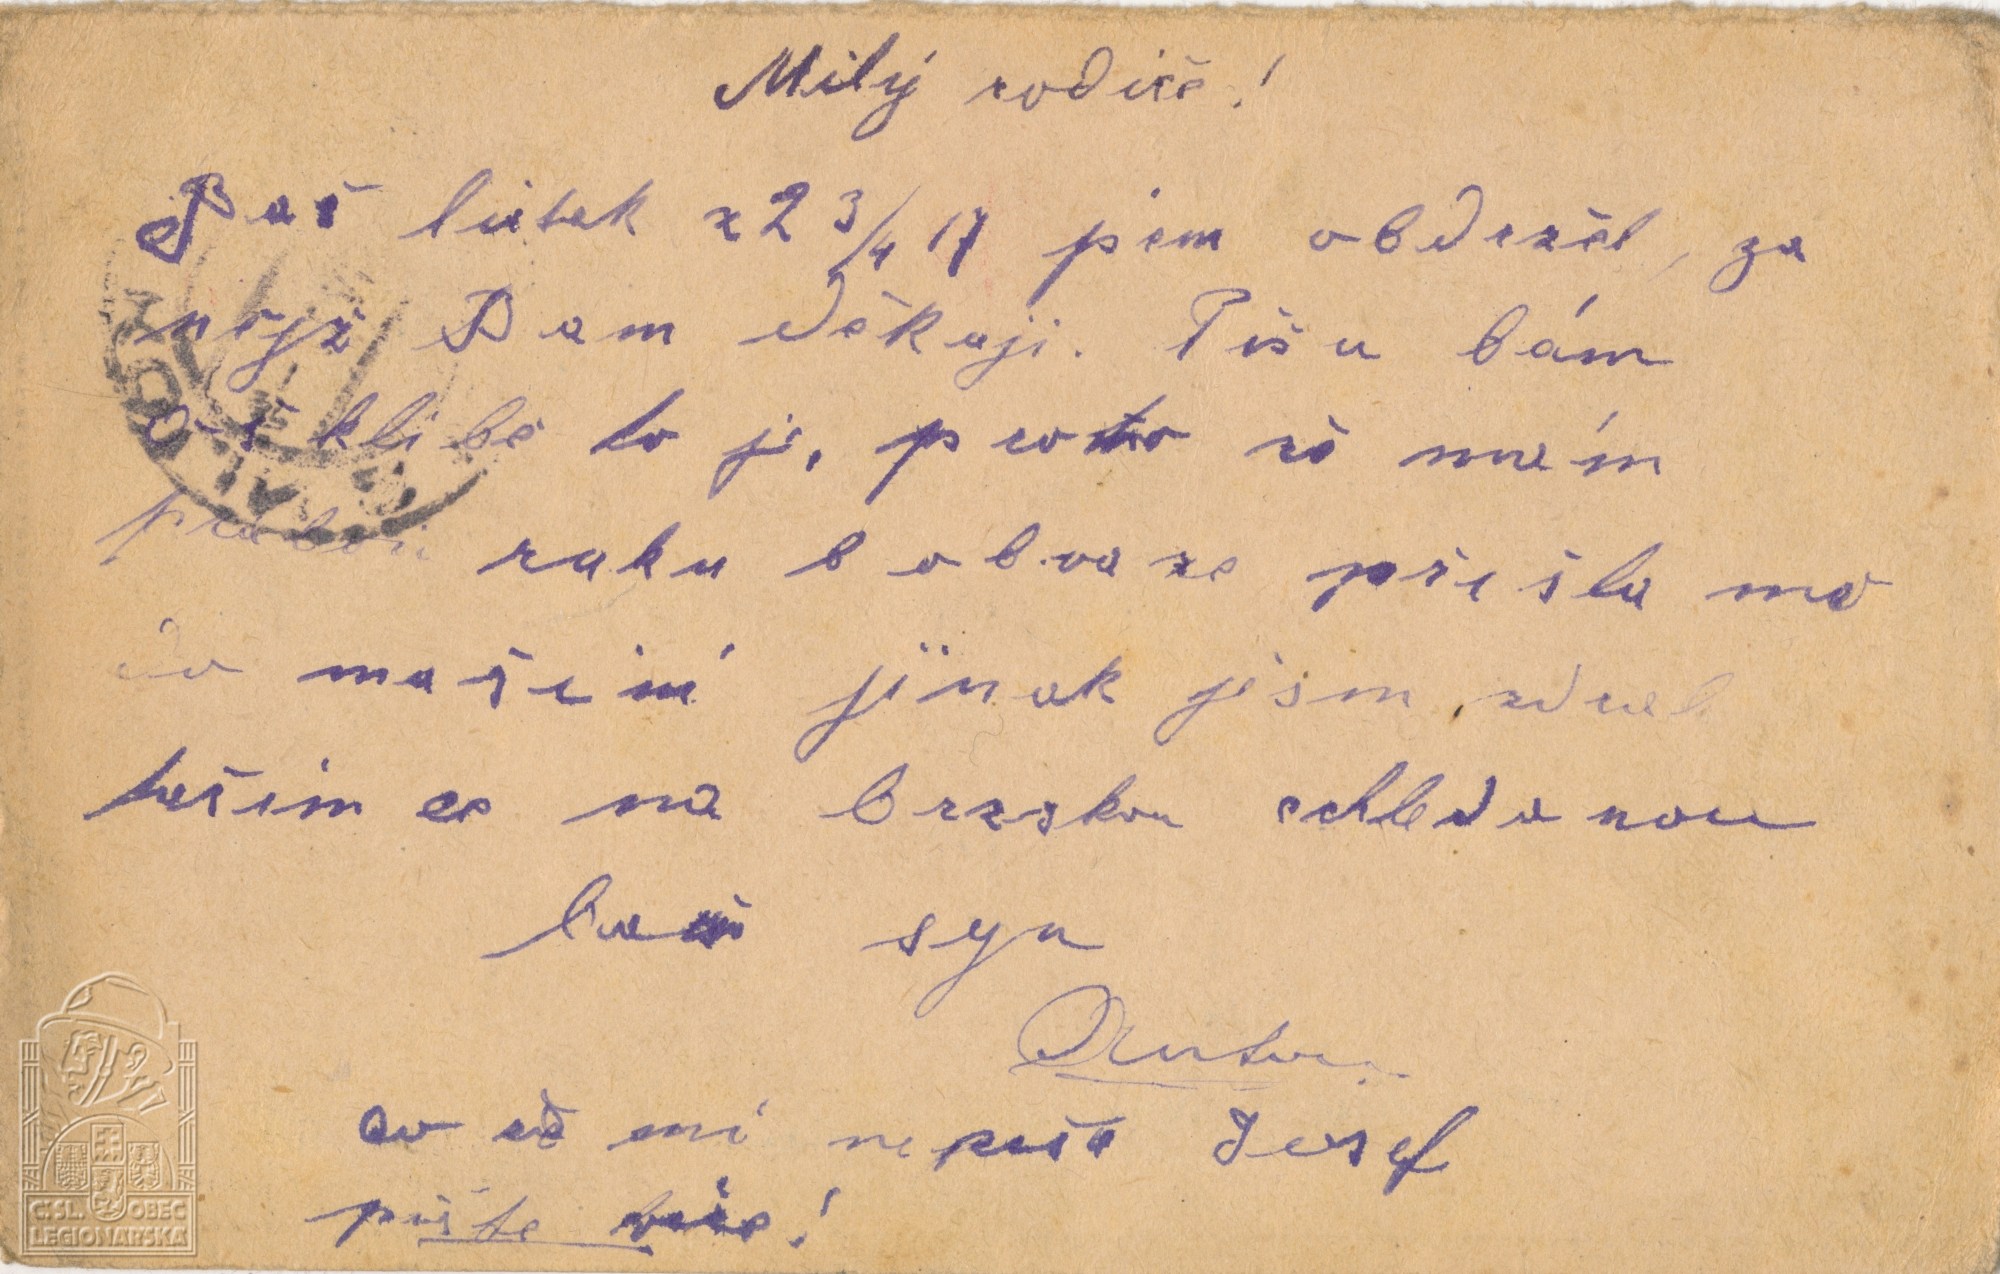 Milý rodiče!
Vaš listek z 2 3/4 17 jsem obdržel, za
nějž Vam děkuji. Pišu bám
oš klibě to je, proto že mám
prabou ruku b obvaze přišla mě
do mašiní jinak jsem zdrab
tešim se na brzskou schledanou
baš syn
Anton
co až mi nepiše Josef
pište více!
ČSL. OBEC
LEGIONÁŘSKÁ